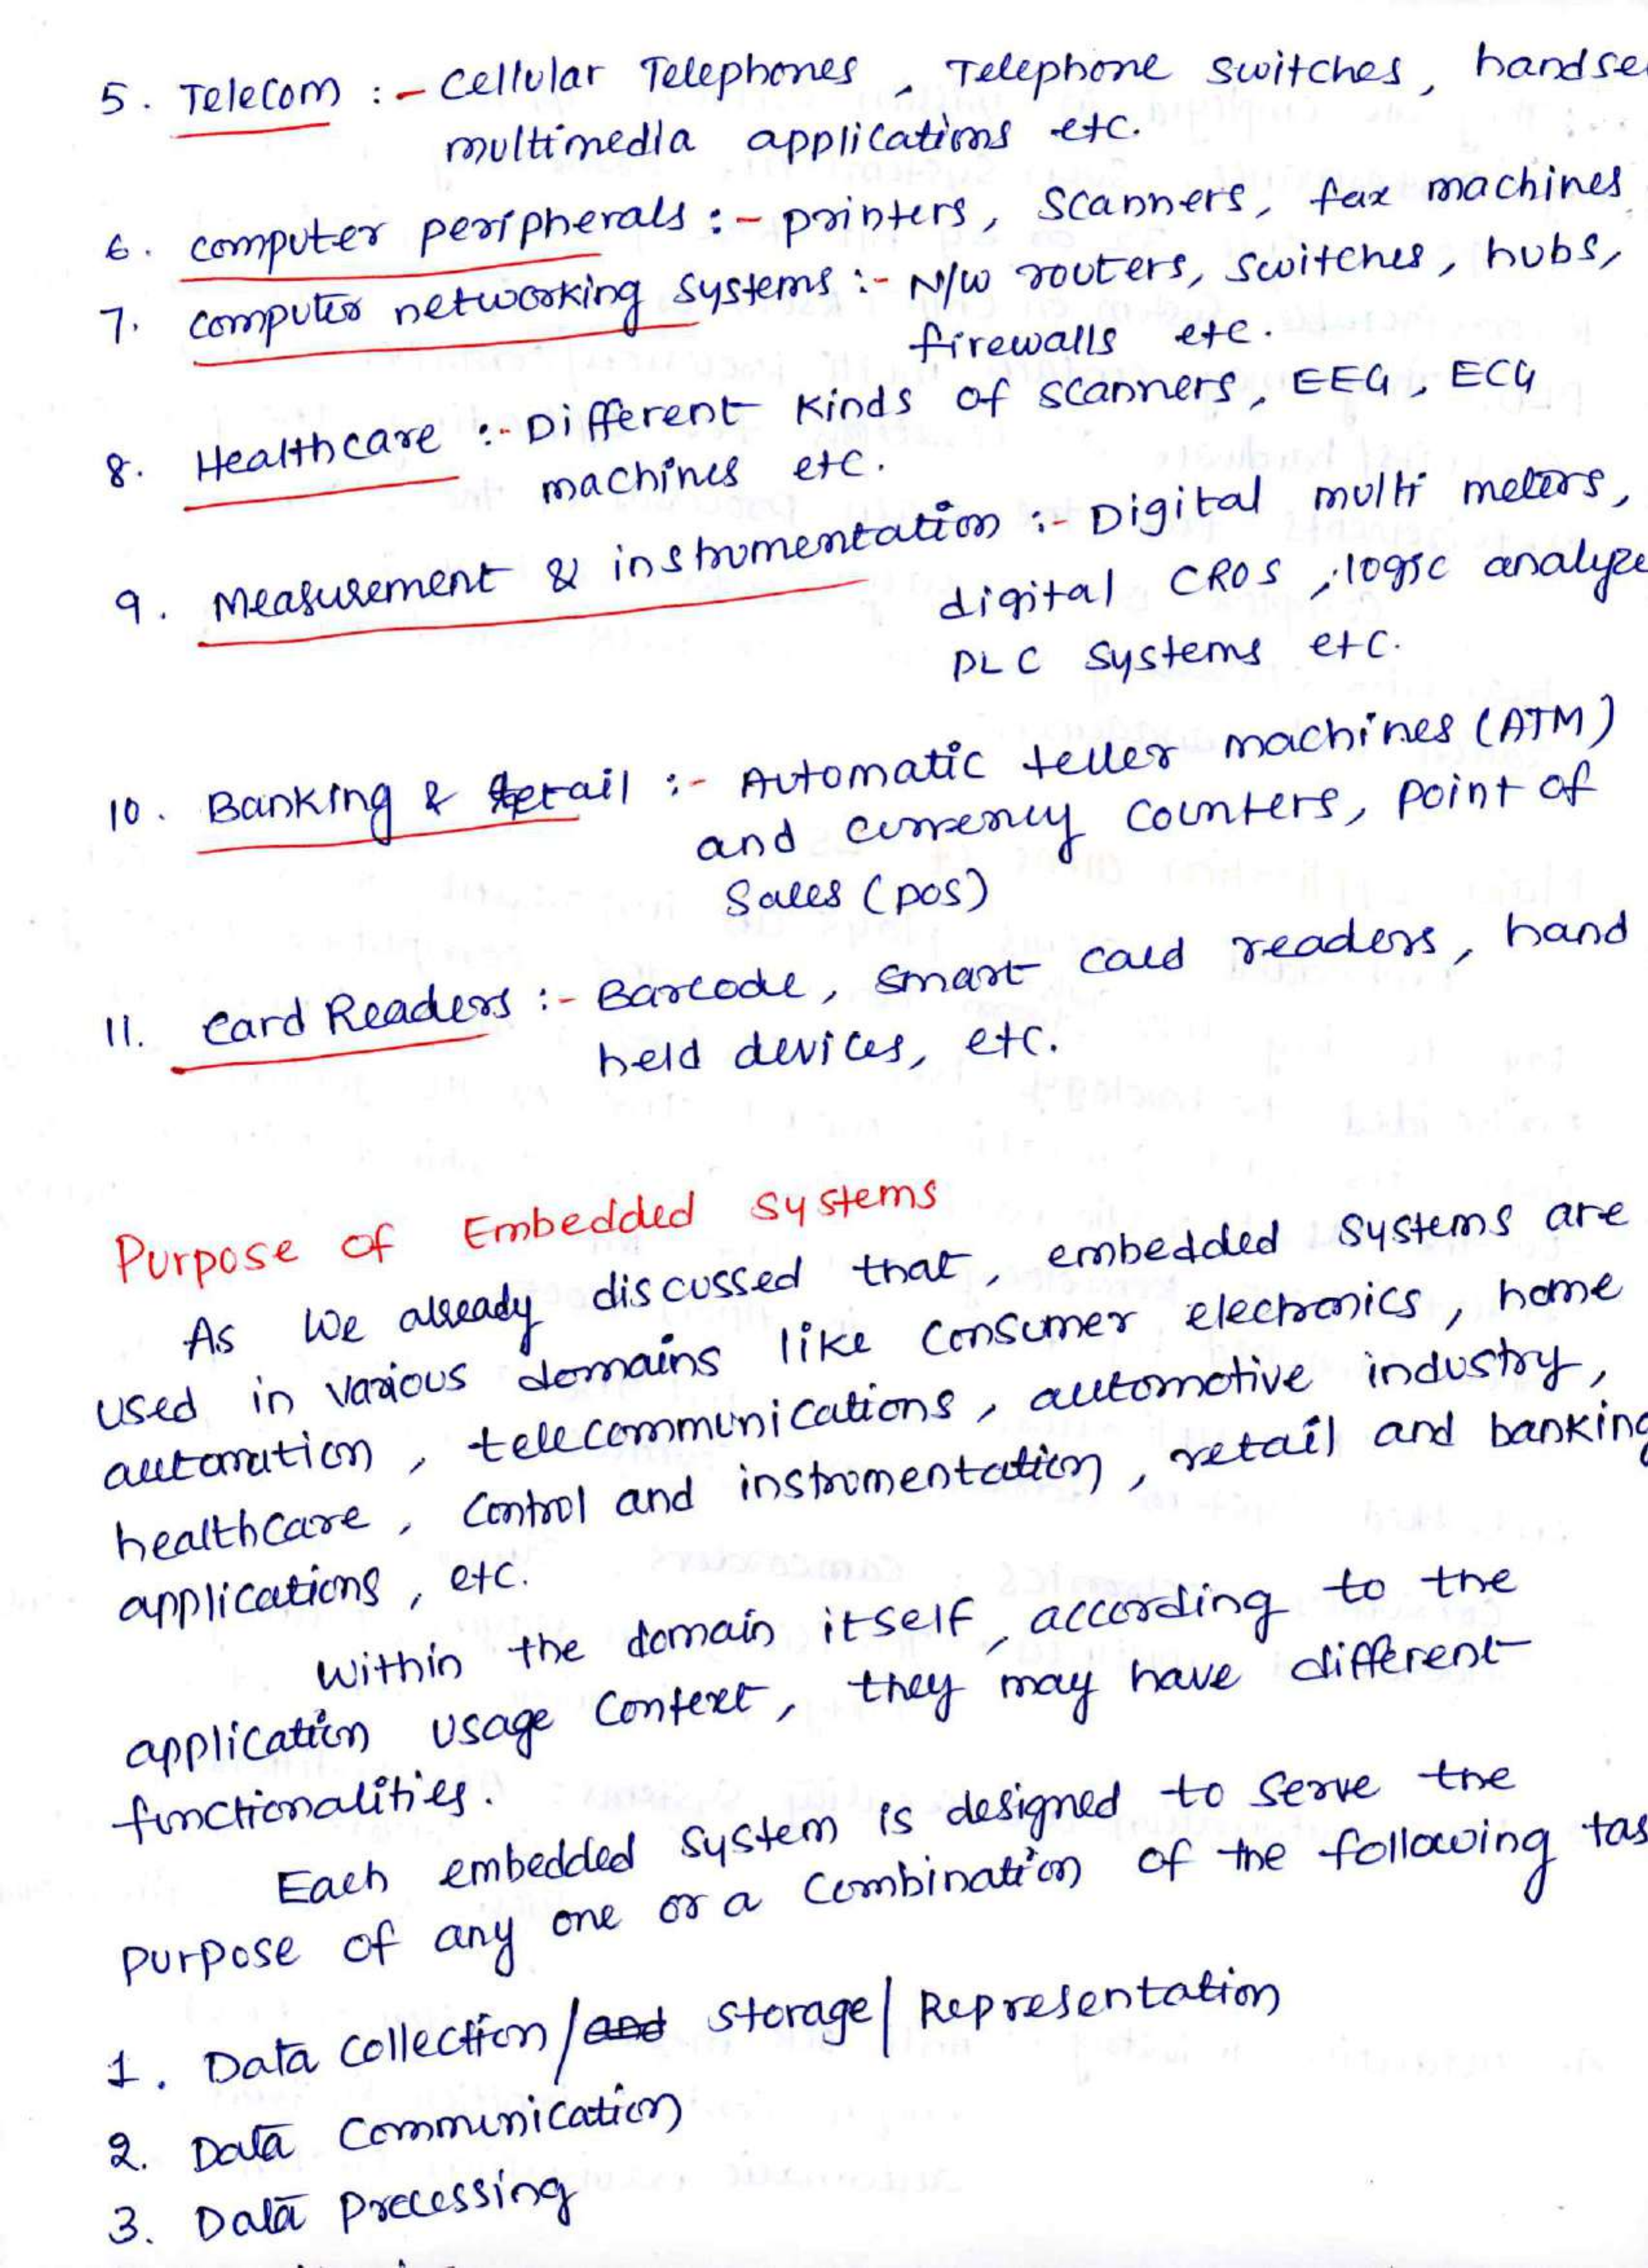 5. Telecom :- Cellular Telephones, Telephone switches, handse
multimedia applications etc.
6. computer peripherals :- printers, scanners, fax machines
7. computer networking systems :- N/W routers, switches, hubs,
firewalls etc.
8. Healthcare :- Different kinds of scanners, EEG, ECG
machines etc.
9. Measurement & instrumentation :- Digital multi meters,
digital CROS, logic analyze
PLC systems etc.
10. Banking & Retail :- Automatic teller machines (ATM)
and currency counters, point of
Sales (POS)
11. Card Readers :- Barcode, smart card readers, hand
held devices, etc.
Purpose of Embedded Systems
As we already discussed that, embedded systems are
used in various domains like consumer electronics, home
automation, telecommunications, automotive industry,
healthcare, control and instrumentation, retail and banking
applications, etc.
within the domain itself, according to the
application usage context, they may have different
functionalities.
Each embedded system is designed to serve the
purpose of any one or a combination of the following tas
1. Data collection/and storage/Representation
2. Data communication
3. Data processing